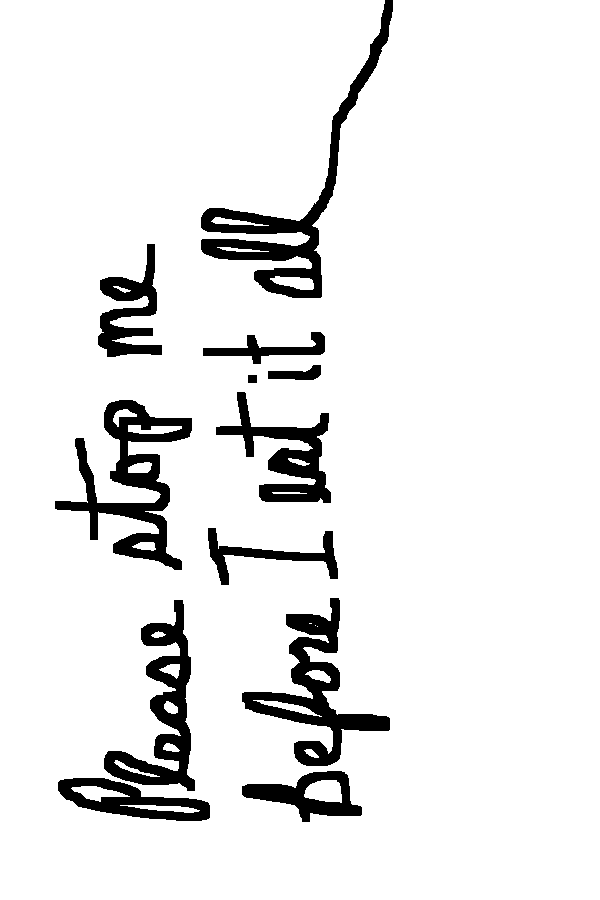 Please stop me
before I eat it all